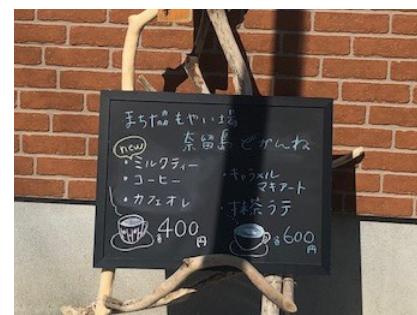 まち協もやい場
奈留島でかんね
new
・ミルクティー
・コーヒー
・カフェオレ
各400円
・キャラメル
マキアート
・抹茶ラテ
各600円